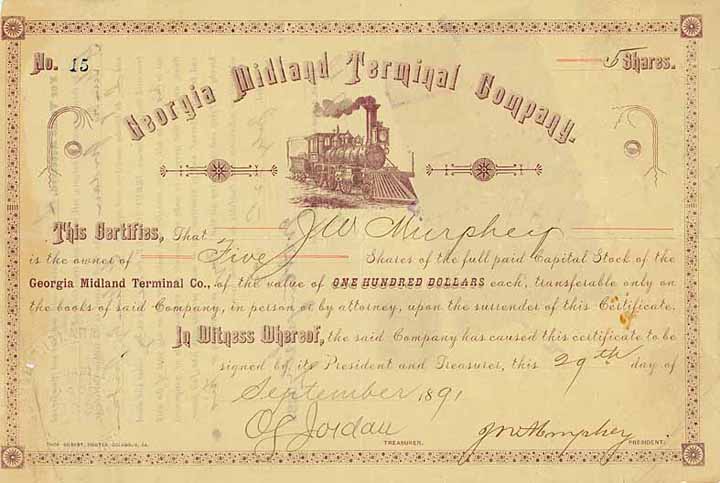 No. 15
5 Shares.
Georgia Midland Terminal Company.
This Certifies, That J W Murphey
is the owner of Five Shares of the full paid Capital Stock of the
Georgia Midland Terminal Co., of the value of ONE HUNDRED DOLLARS each, transferable only on
the books of said Company, in person or by attorney, upon the surrender of this Certificate.
In Witness Whereof, the said Company has caused this certificate to be
signed by its President and Treasurer, this 29th day of
September 1891
Jordan
TREASURER.
PRESIDENT.
THOS. GILBERT, PRINTER, COLUMBUS, GA.